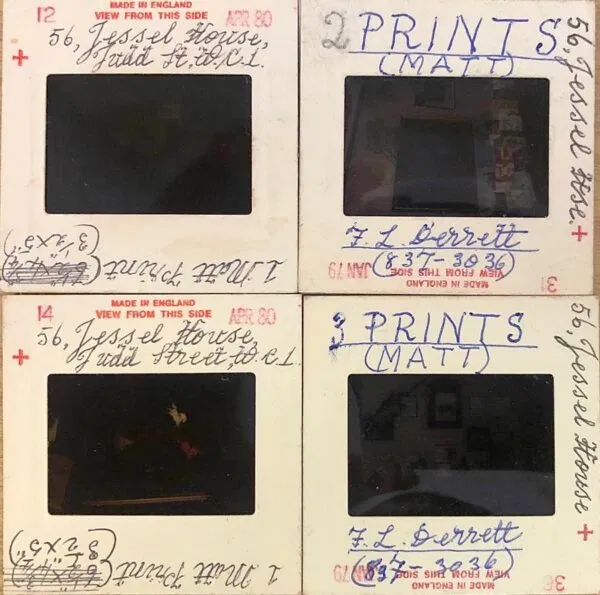 12
MADE IN ENGLAND
VIEW FROM THIS SIDE
APR 80
56, Jessel House,
Judd St, W.C.1.
+
1 Matt Print
(3½" x 5")
2 PRINTS
(MATT)
56, Jessel Hse.
+
F. L. Derrett
(837-3036)
JAN 79
MADE IN ENGLAND
VIEW FROM THIS SIDE
31
14
MADE IN ENGLAND
VIEW FROM THIS SIDE
APR 80
56, Jessel House,
Judd Street, W.C.1.
+
1 Matt Print
(3½" x 5")
3 PRINTS
(MATT)
56, Jessel House
+
F. L. Derrett
(837-3036)
JAN 79
MADE IN ENGLAND
VIEW FROM THIS SIDE
36